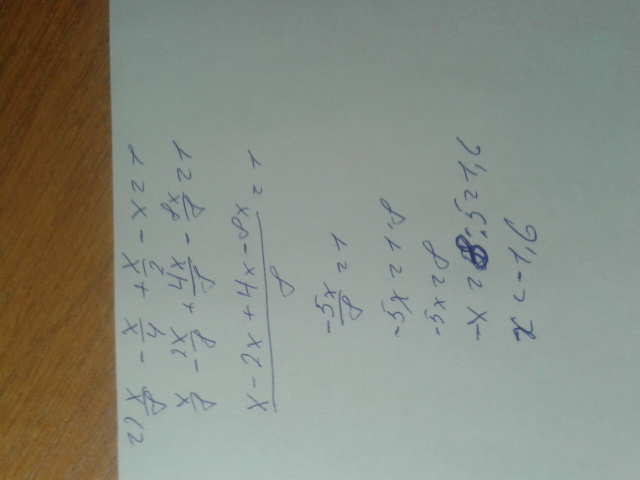 2) x/8 - x/4 + x/2 - x = 1
x/8 - 2x/8 + 4x/8 - 8x/8 = 1
(x - 2x + 4x - 8x)/8 = 1
-5x/8 = 1
-5x = 1·8
-5x = 8
-x = 8:5 = 1,6
x = -1,6